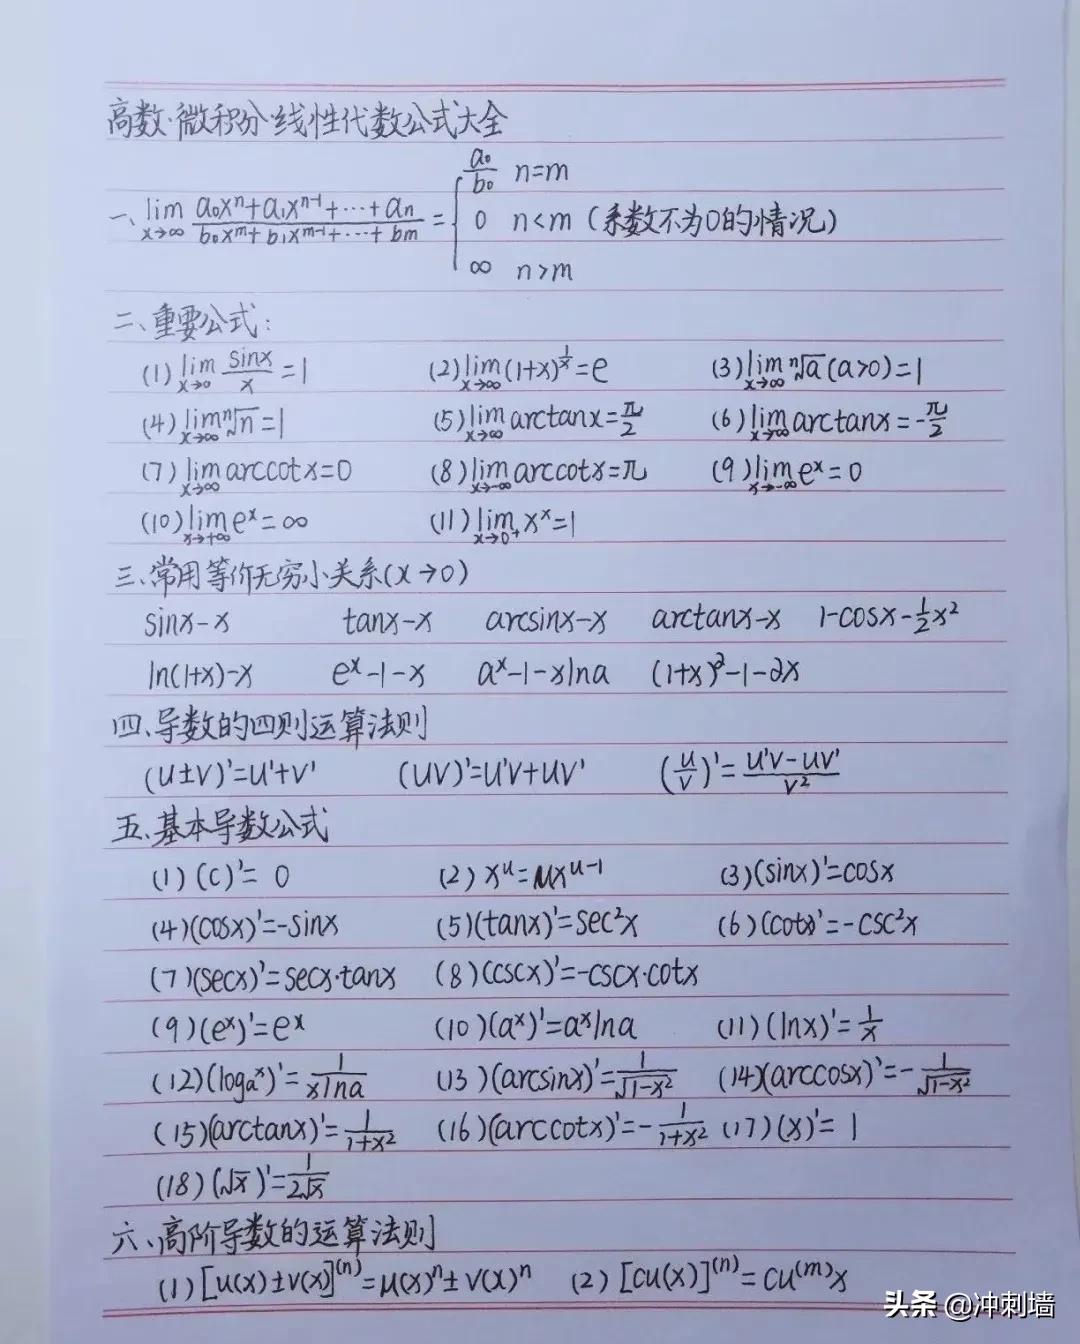 高数·微积分·线性代数公式大全
一、lim x→∞ (a₀xⁿ+a₁xⁿ⁻¹+…+aₙ)/(b₀xᵐ+b₁xᵐ⁻¹+…+bₘ) = { a₀/b₀ n=m
0 n<m (系数不为0的情况)
∞ n>m
二、重要公式:
(1) lim x→0 sinx/x =1 (2) lim x→∞ (1+x)^(1/x)=e (3) lim x→∞ ⁿ√a (a>0)=1
(4) lim x→∞ ⁿ√n =1 (5) lim x→∞ arctanx=π/2 (6) lim x→∞ arctanx=-π/2
(7) lim x→∞ arccotx=0 (8) lim x→-∞ arccotx=π (9) lim x→-∞ eˣ=0
(10) lim x→+∞ eˣ=∞ (11) lim x→0⁺ xˣ=1
三、常用等价无穷小关系(x→0)
sinx-x tanx-x arcsinx-x arctanx-x 1-cosx-½x²
ln(1+x)-x eˣ-1-x aˣ-1-xlna (1+x)^∂-1-∂x
四、导数的四则运算法则
(u±v)'=u'+v' (uv)'=u'v+uv' (u/v)'=(u'v-uv')/v²
五、基本导数公式
(1)(c)'=0 (2) xᵘ=μxᵘ⁻¹ (3)(sinx)'=cosx
(4)(cosx)'=-sinx (5)(tanx)'=sec²x (6)(cotx)'=-csc²x
(7)(secx)'=secx·tanx (8)(cscx)'=-cscx·cotx
(9)(eˣ)'=eˣ (10)(aˣ)'=aˣlna (11)(lnx)'=1/x
(12)(logₐˣ)'=1/(xlna) (13)(arcsinx)'=1/√(1-x²) (14)(arccosx)'=-1/√(1-x²)
(15)(arctanx)'=1/(1+x²) (16)(arccotx)'=-1/(1+x²) (17)(x)'=1
(18)(√x)'=1/(2√x)
六、高阶导数的运算法则
(1)[u(x)±v(x)]⁽ⁿ⁾=u(x)ⁿ±v(x)ⁿ (2)[cu(x)]⁽ⁿ⁾=cu⁽ᵐ⁾x
头条 @冲刺墙